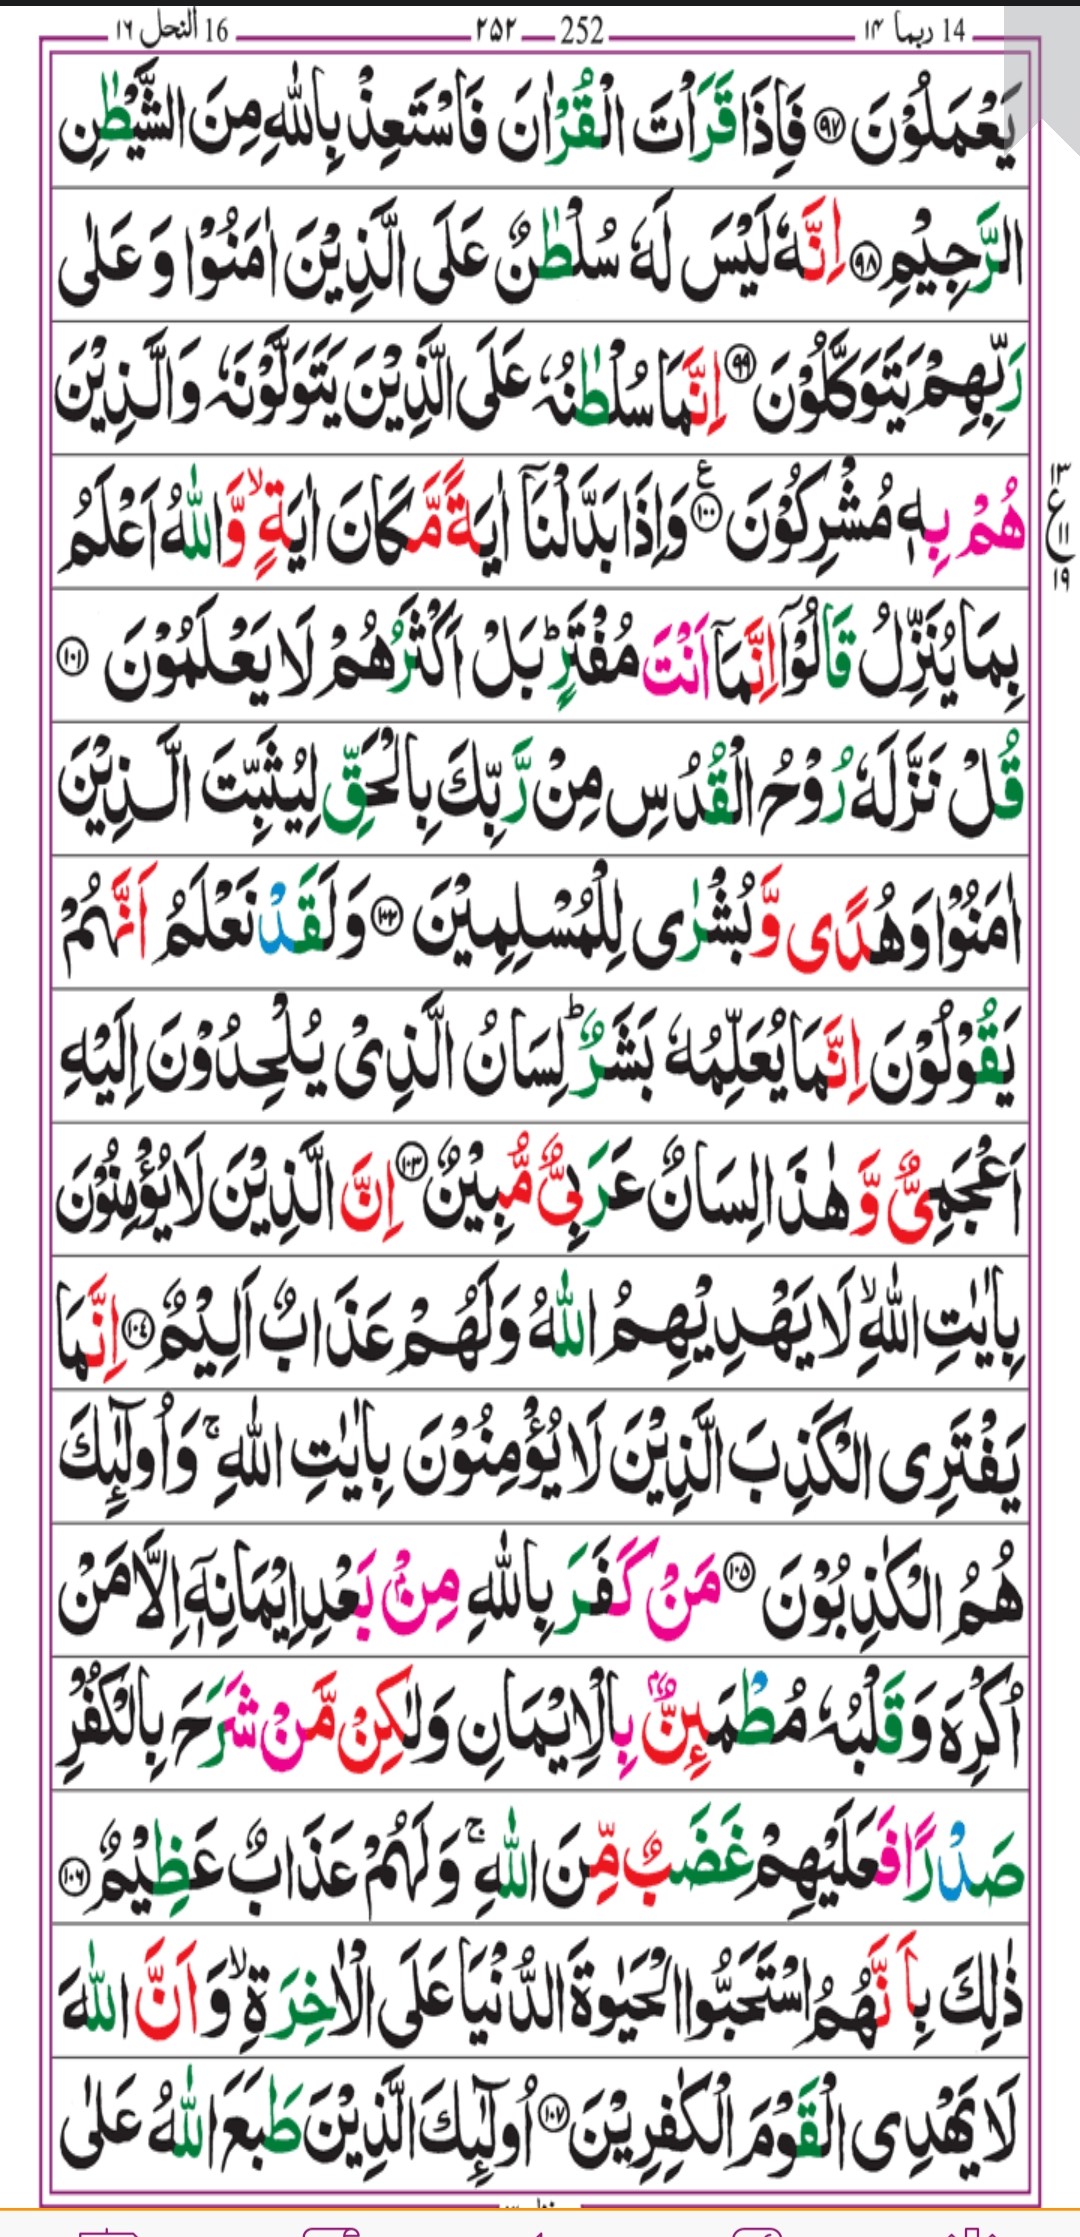 14 ربما ۱۴ 252 ۲۵۲ 16 النحل ۱۶
يَعْمَلُوْنَ ﴿۹۷﴾ فَاِذَا قَرَاْتَ الْقُرْاٰنَ فَاسْتَعِذْ بِاللّٰهِ مِنَ الشَّيْطٰنِ
الرَّجِيْمِ ﴿۹۸﴾ اِنَّهٗ لَيْسَ لَهٗ سُلْطٰنٌ عَلَى الَّذِيْنَ اٰمَنُوْا وَ عَلٰى
رَبِّهِمْ يَتَوَكَّلُوْنَ ﴿۹۹﴾ اِنَّمَا سُلْطٰنُهٗ عَلَى الَّذِيْنَ يَتَوَلَّوْنَهٗ وَالَّذِيْنَ
هُمْ بِهٖ مُشْرِكُوْنَ ﴿۱۰۰﴾ ع وَاِذَا بَدَّلْنَآ اٰيَةً مَّكَانَ اٰيَةٍ ۙ وَّاللّٰهُ اَعْلَمُ
۱۳
ع
۱۱
۱۹
بِمَا يُنَزِّلُ قَالُوْٓا اِنَّمَآ اَنْتَ مُفْتَرٍ ؕ بَلْ اَكْثَرُهُمْ لَا يَعْلَمُوْنَ ﴿۱۰۱﴾
قُلْ نَزَّلَهٗ رُوْحُ الْقُدُسِ مِنْ رَّبِّكَ بِالْحَقِّ لِيُثَبِّتَ الَّذِيْنَ
اٰمَنُوْا وَهُدًى وَّبُشْرٰى لِلْمُسْلِمِيْنَ وَلَقَدْ نَعْلَمُ اَنَّهُمْ
يَقُوْلُوْنَ اِنَّمَا يُعَلِّمُهٗ بَشَرٌ ؕ لِسَانُ الَّذِىْ يُلْحِدُوْنَ اِلَيْهِ
اَعْجَمِىٌّ وَّ هٰذَا لِسَانٌ عَرَبِىٌّ مُّبِيْنٌ ﴿۱۰۳﴾ اِنَّ الَّذِيْنَ لَا يُؤْمِنُوْنَ
بِاٰيٰتِ اللّٰهِ ۙ لَا يَهْدِيْهِمُ اللّٰهُ وَلَهُمْ عَذَابٌ اَلِيْمٌ ﴿۱۰٤﴾ اِنَّمَا
يَفْتَرِى الْكَذِبَ الَّذِيْنَ لَا يُؤْمِنُوْنَ بِاٰيٰتِ اللّٰهِ ۚ وَاُولٰٓئِكَ
هُمُ الْكٰذِبُوْنَ ﴿۱۰۵﴾ مَنْ كَفَرَ بِاللّٰهِ مِنْۢ بَعْدِ اِيْمَانِهٖٓ اِلَّا مَنْ
اُكْرِهَ وَ قَلْبُهٗ مُطْمَئِنٌّۢ بِالْاِيْمَانِ وَلٰكِنْ مَّنْ شَرَحَ بِالْكُفْرِ
صَدْرًا فَعَلَيْهِمْ غَضَبٌ مِّنَ اللّٰهِ ۚ وَلَهُمْ عَذَابٌ عَظِيْمٌ ﴿۱۰۶﴾
ذٰلِكَ بِاَنَّهُمُ اسْتَحَبُّوا الْحَيٰوةَ الدُّنْيَا عَلَى الْاٰخِرَةِ ۙ وَ اَنَّ اللّٰهَ
لَا يَهْدِى الْقَوْمَ الْكٰفِرِيْنَ ﴿۱۰۷﴾ اُولٰٓئِكَ الَّذِيْنَ طَبَعَ اللّٰهُ عَلٰى